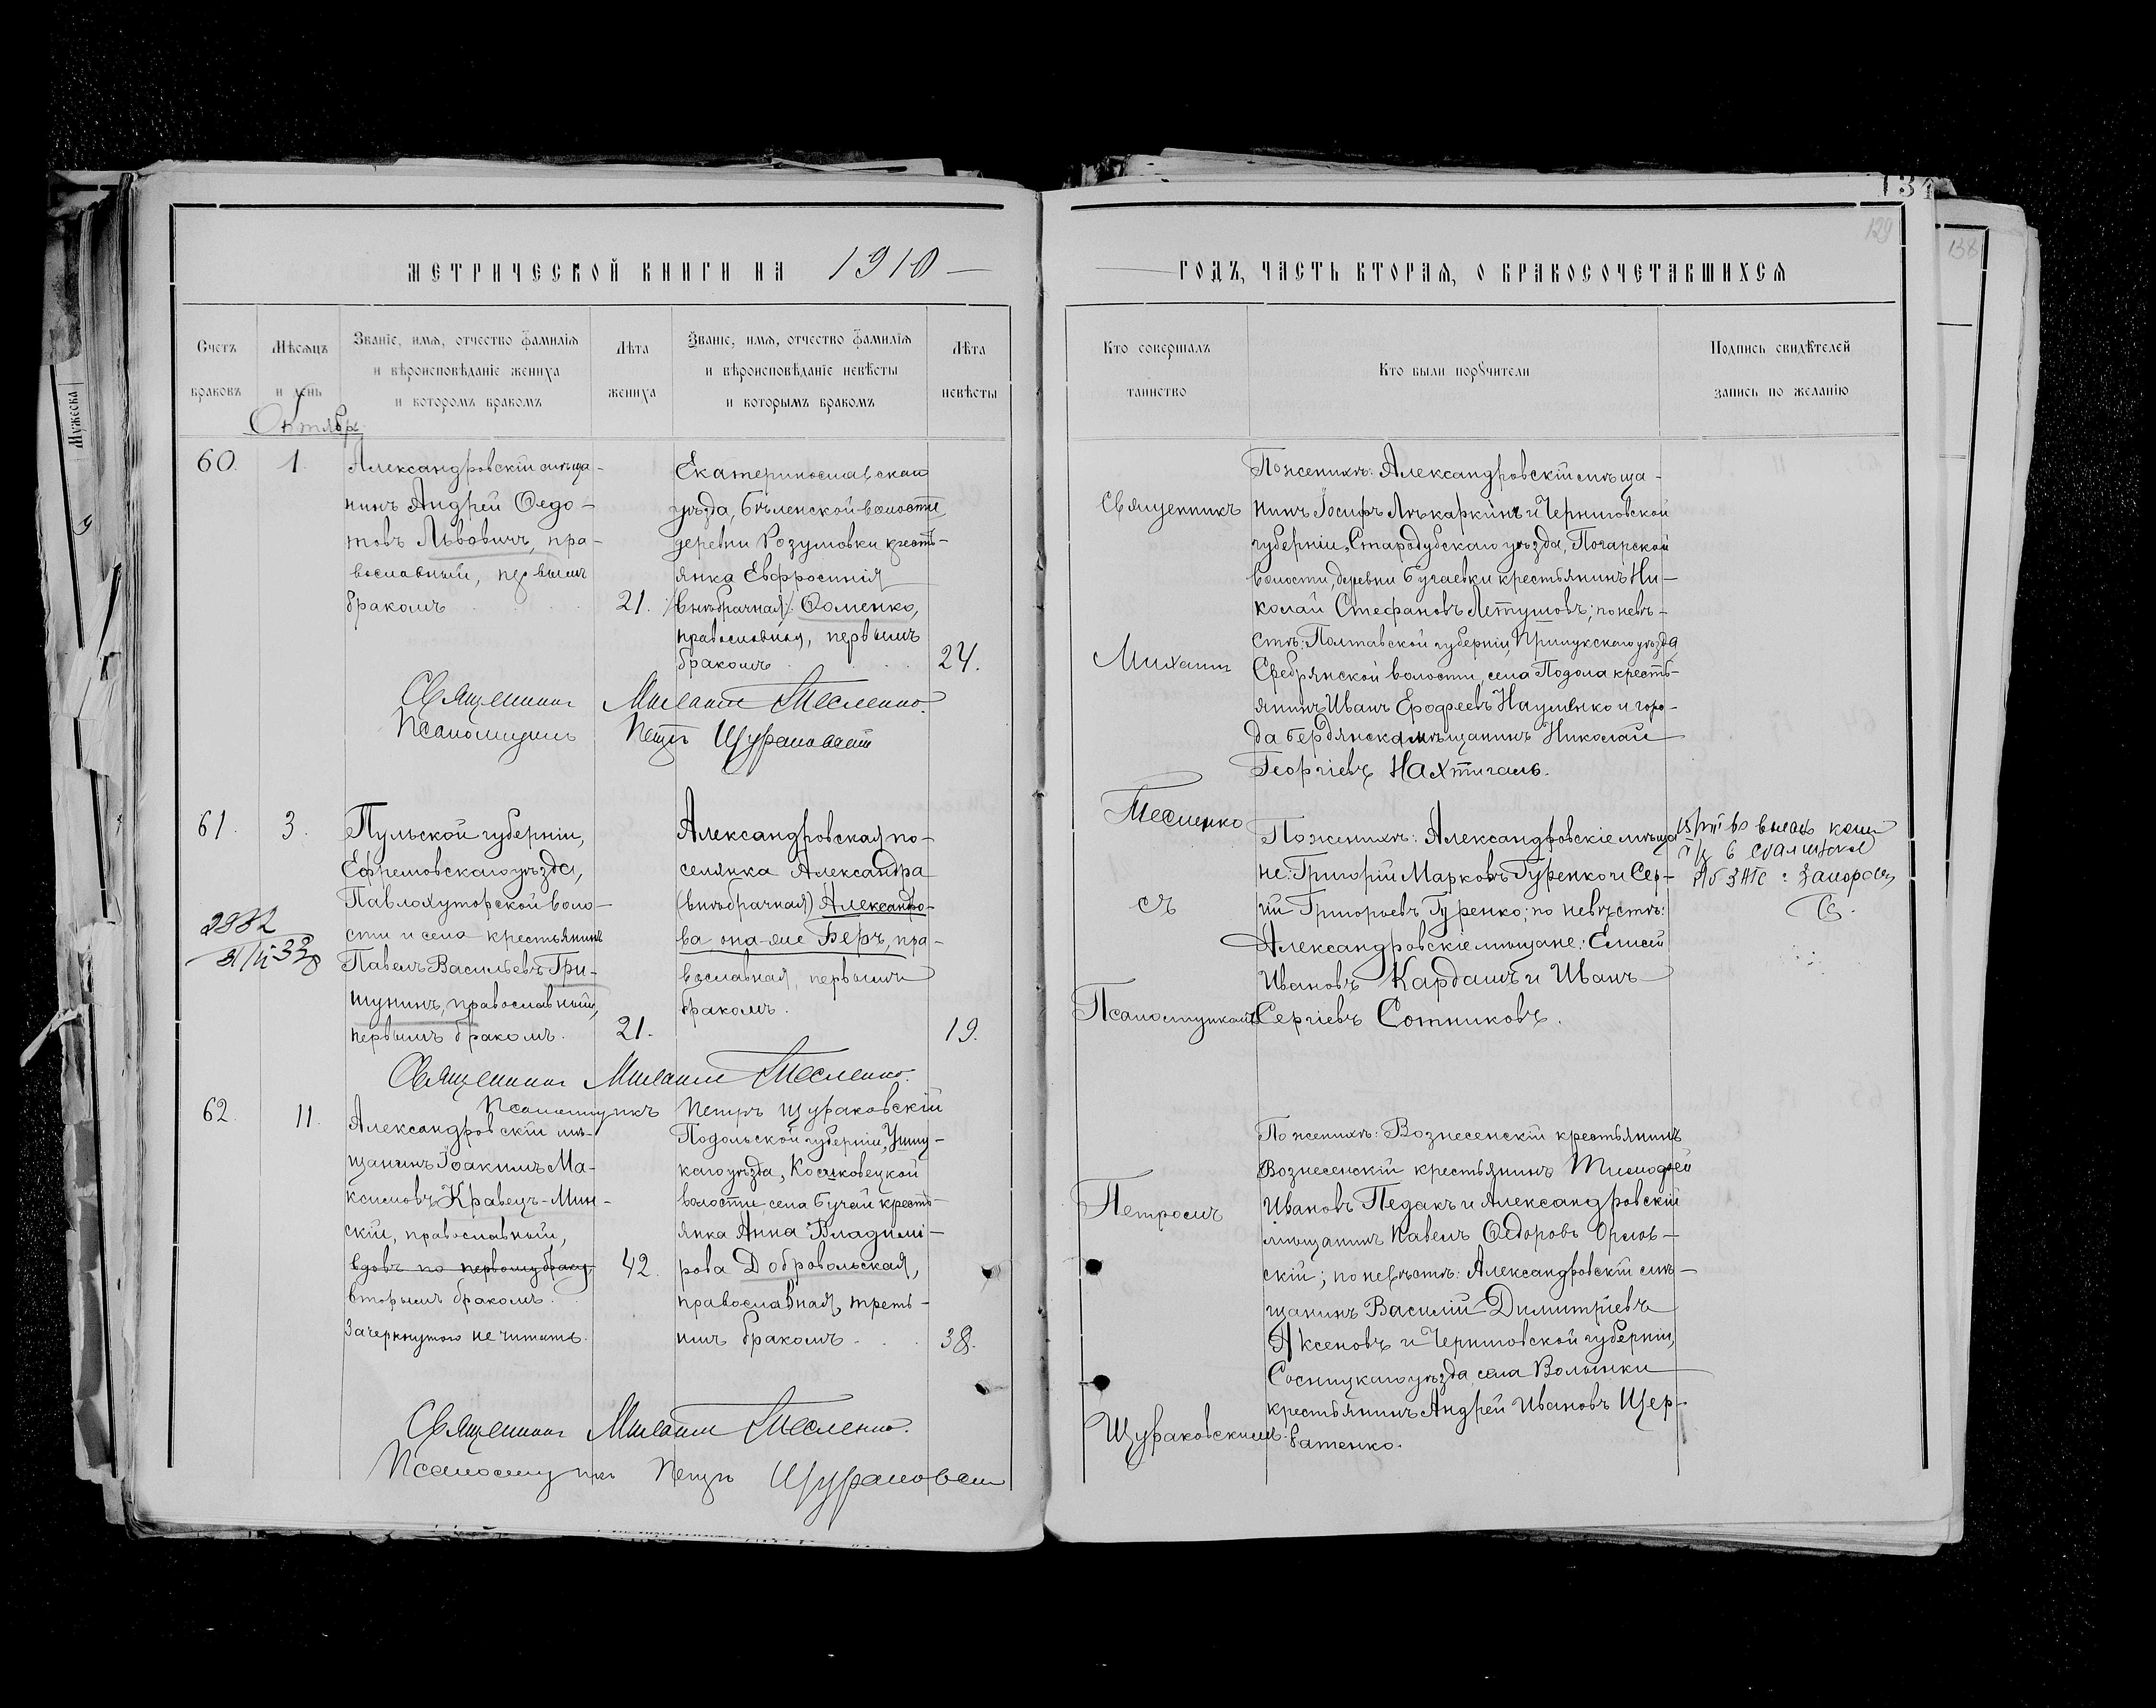 134
129
138
Мужеска
МЕТРИЧЕСКОЙ КНИГИ НА 1910
Счетъ браковъ
Мѣсяцъ и день
Званіе, имя, отчество фамилія
и вѣроисповѣданіе жениха
и которомъ бракомъ
Лѣта жениха
Званіе, имя, отчество фамилія
и вѣроисповѣданіе невѣсты
и которымъ бракомъ
Лѣта невѣсты
Октябрь
60. 1.
Александровскій мѣща-
нинъ Андрей Ѳедо-
товъ Львовичъ, пра-
вославный, первымъ
бракомъ
21.
Екатеринославскаго
уѣзда, Бѣленской волости
деревни Розумовки кресть-
янка Евфросинія
(внѣбрачная) Ѳоменко,
православная, первымъ
бракомъ
24.
Священникъ Михаилъ Тесленко.
Псаломщикъ Петръ Щураковскій
61. 3.
Тульской губерніи,
Ефремовскаго уѣзда,
Павлохуторской воло-
сти и села крестьянинъ
Павелъ Васильевъ Гри-
шунинъ, православный,
первымъ бракомъ.
21.
2982
Александровская по-
селянка Александра
(внѣбрачная) Александро-
ва, она-же Беръ, пра-
вославная, первымъ
бракомъ.
19.
Священникъ Михаилъ Тесленко.
Псаломщикъ Петръ Щураковскій
62. 11.
Александровскій мѣ-
щанинъ Іоакимъ Ма-
ксимовъ Кравецъ-Мин-
скій, православный,
вдовъ по первому браку,
вторымъ бракомъ.
Зачеркнутого не читать.
42.
Подольской губерніи, Ушиц-
каго уѣзда, Косиковецкой
волости, села Бучай кресть-
янка Анна Владимі-
рова Добровольская,
православная, треть-
имъ бракомъ
38.
Священникъ Михаилъ Тесленко.
Псаломщикъ Петръ Щураковскій
ГОДЪ, ЧАСТЬ ВТОРАЯ, О БРАКОСОЧЕТАВШИХСЯ
Кто совершалъ таинство
Кто были поручители
Подпись свидѣтелей
запись по желанію
Священникъ
Михаилъ
Тесленко
съ
Псаломщикомъ
Петромъ
Щураковскимъ.
По женихѣ: Александровскій мѣща-
нинъ Іосифъ Лѣкаркинъ и Черниговской
губерніи, Стародубскаго уѣзда, Погарской
волости, деревни Бугаевки крестьянинъ Ни-
колай Стефановъ Летушовъ; по невѣ-
стѣ: Полтавской губерніи, Прилукскаго уѣзда
Сребрянской волости, села Подола кресть-
янинъ Иванъ Ерофеевъ Науменко и горо-
да Бердянска мѣщанинъ Николай
Георгіевъ Нахтигаль.
По женихѣ: Александровскіе мѣща-
не: Григорій Марковъ Гуренко и Сер-
гій Григорьевъ Гуренко; по невѣстѣ:
Александровскіе мѣщане: Елисей
Ивановъ Кардашъ и Иванъ
Сергіевъ Сотниковъ.
По женихѣ: Вознесенскій крестьянинъ
Вознесенскій крестьянинъ Тимоѳей
Ивановъ Педакъ и Александровскій
мѣщанинъ Павелъ Ѳедоровъ Орлов-
скій; по невѣстѣ: Александровскій мѣ-
щанинъ Василій Димитріевъ
Аксеновъ и Черниговской губерніи,
Сосницкаго уѣзда, села Волынки
крестьянинъ Андрей Ивановъ Щер-
батенко.